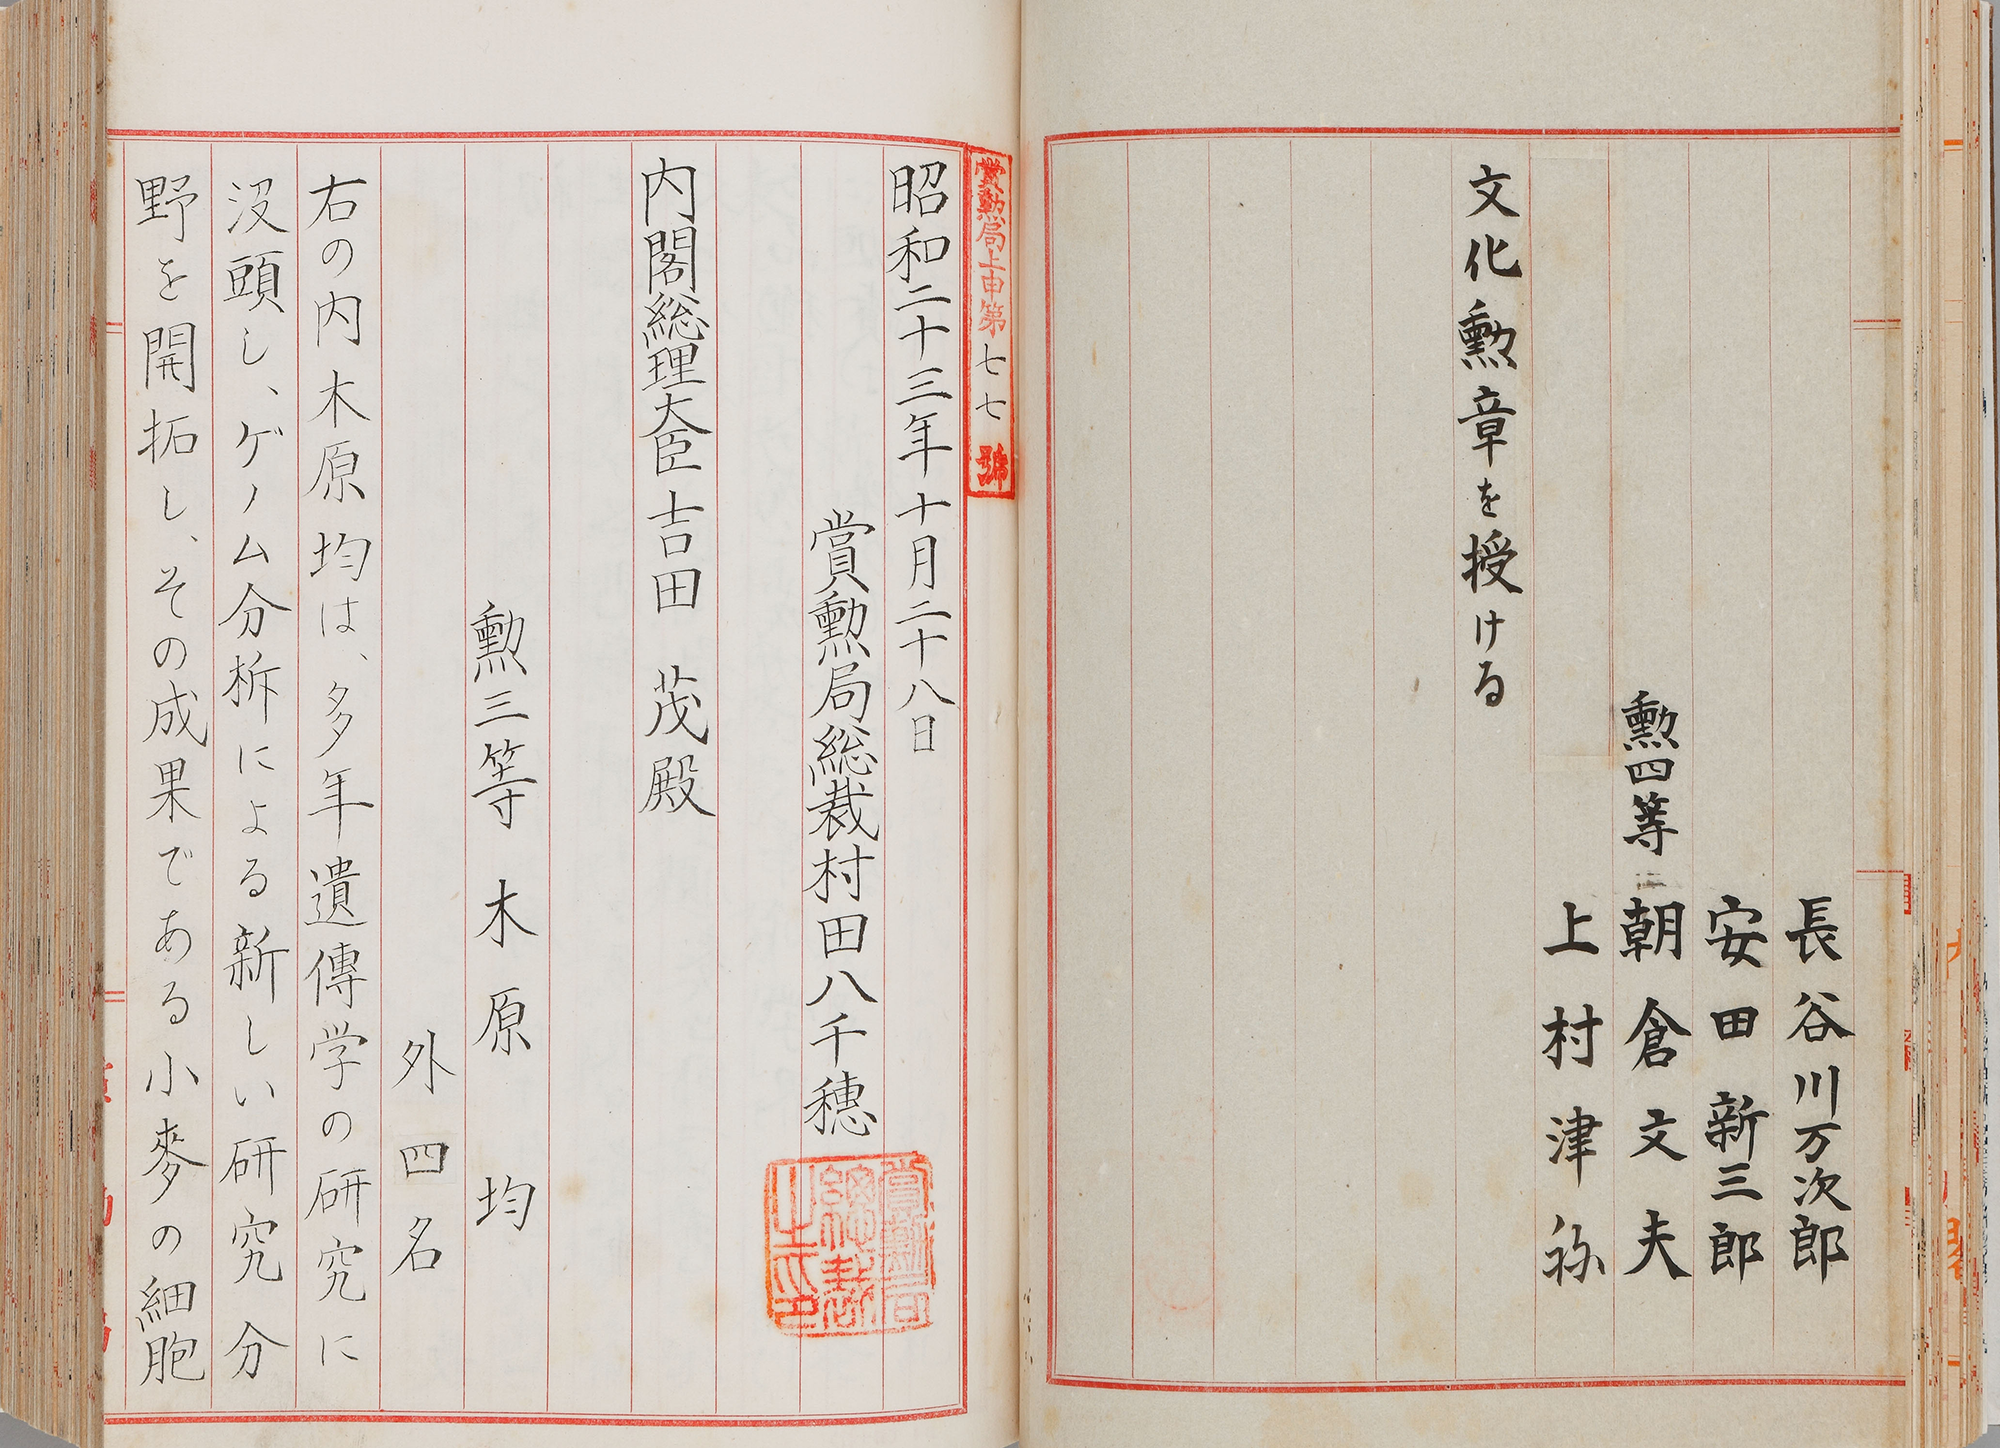 長谷川万次郎
安田新三郎
勲四等朝倉文夫
上村津祢
文化勲章を授ける
賞勲局上申第七七號
昭和二十三年十月二十八日
賞勲局総裁村田八千穂
賞勲局総裁之印
内閣総理大臣吉田 茂殿
勲三等木原 均
外四名
右の内木原均は、多年遺傳学の研究に
没頭し、ゲノム分析による新しい研究分
野を開拓し、その成果である小麥の細胞